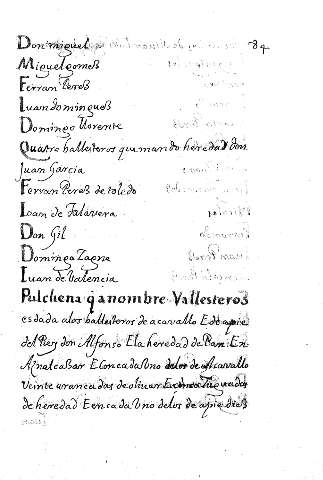 84
Don miguel
Miguel gomeß
Ferran Pereß
Iuan domingueß
Domingo llorente
Quatro ballesteros que mando heredad don
Juan Garcia
Ferran Pereß de toledo
Ioan de Talavera
Don Gil
Domingo
Iuan de Valencia
Pulchena q a nombre Vallesteroß
es dada a los ballesteros de acavallo E de apie
del Rey don Alfonso E la heredad de Pan En
Aznalcaßar E en cada Uno de los de acavallo
Veinte arancadas de olivar E
de heredad E en cada Uno de los de apie dieß